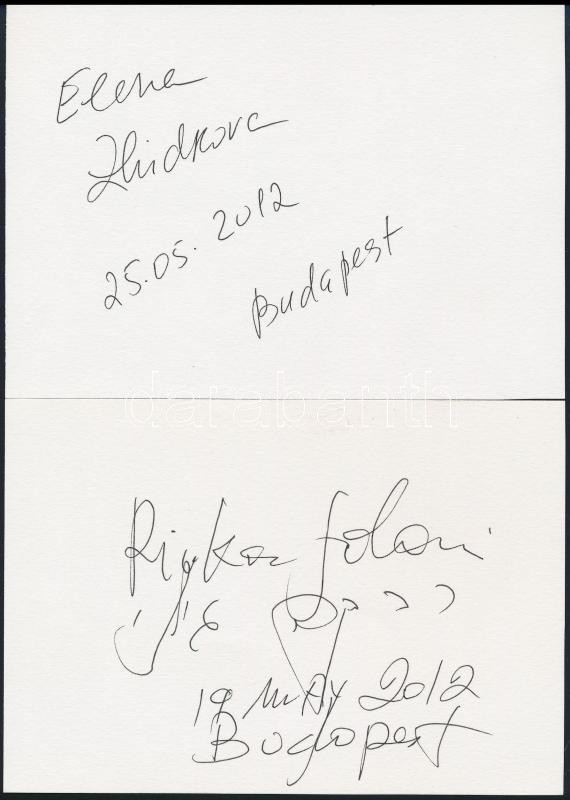 Elena
Zhidkova
25.05. 2012
Budapest
darabanth
Rivka Golani
19 MAY 2012
Budapest